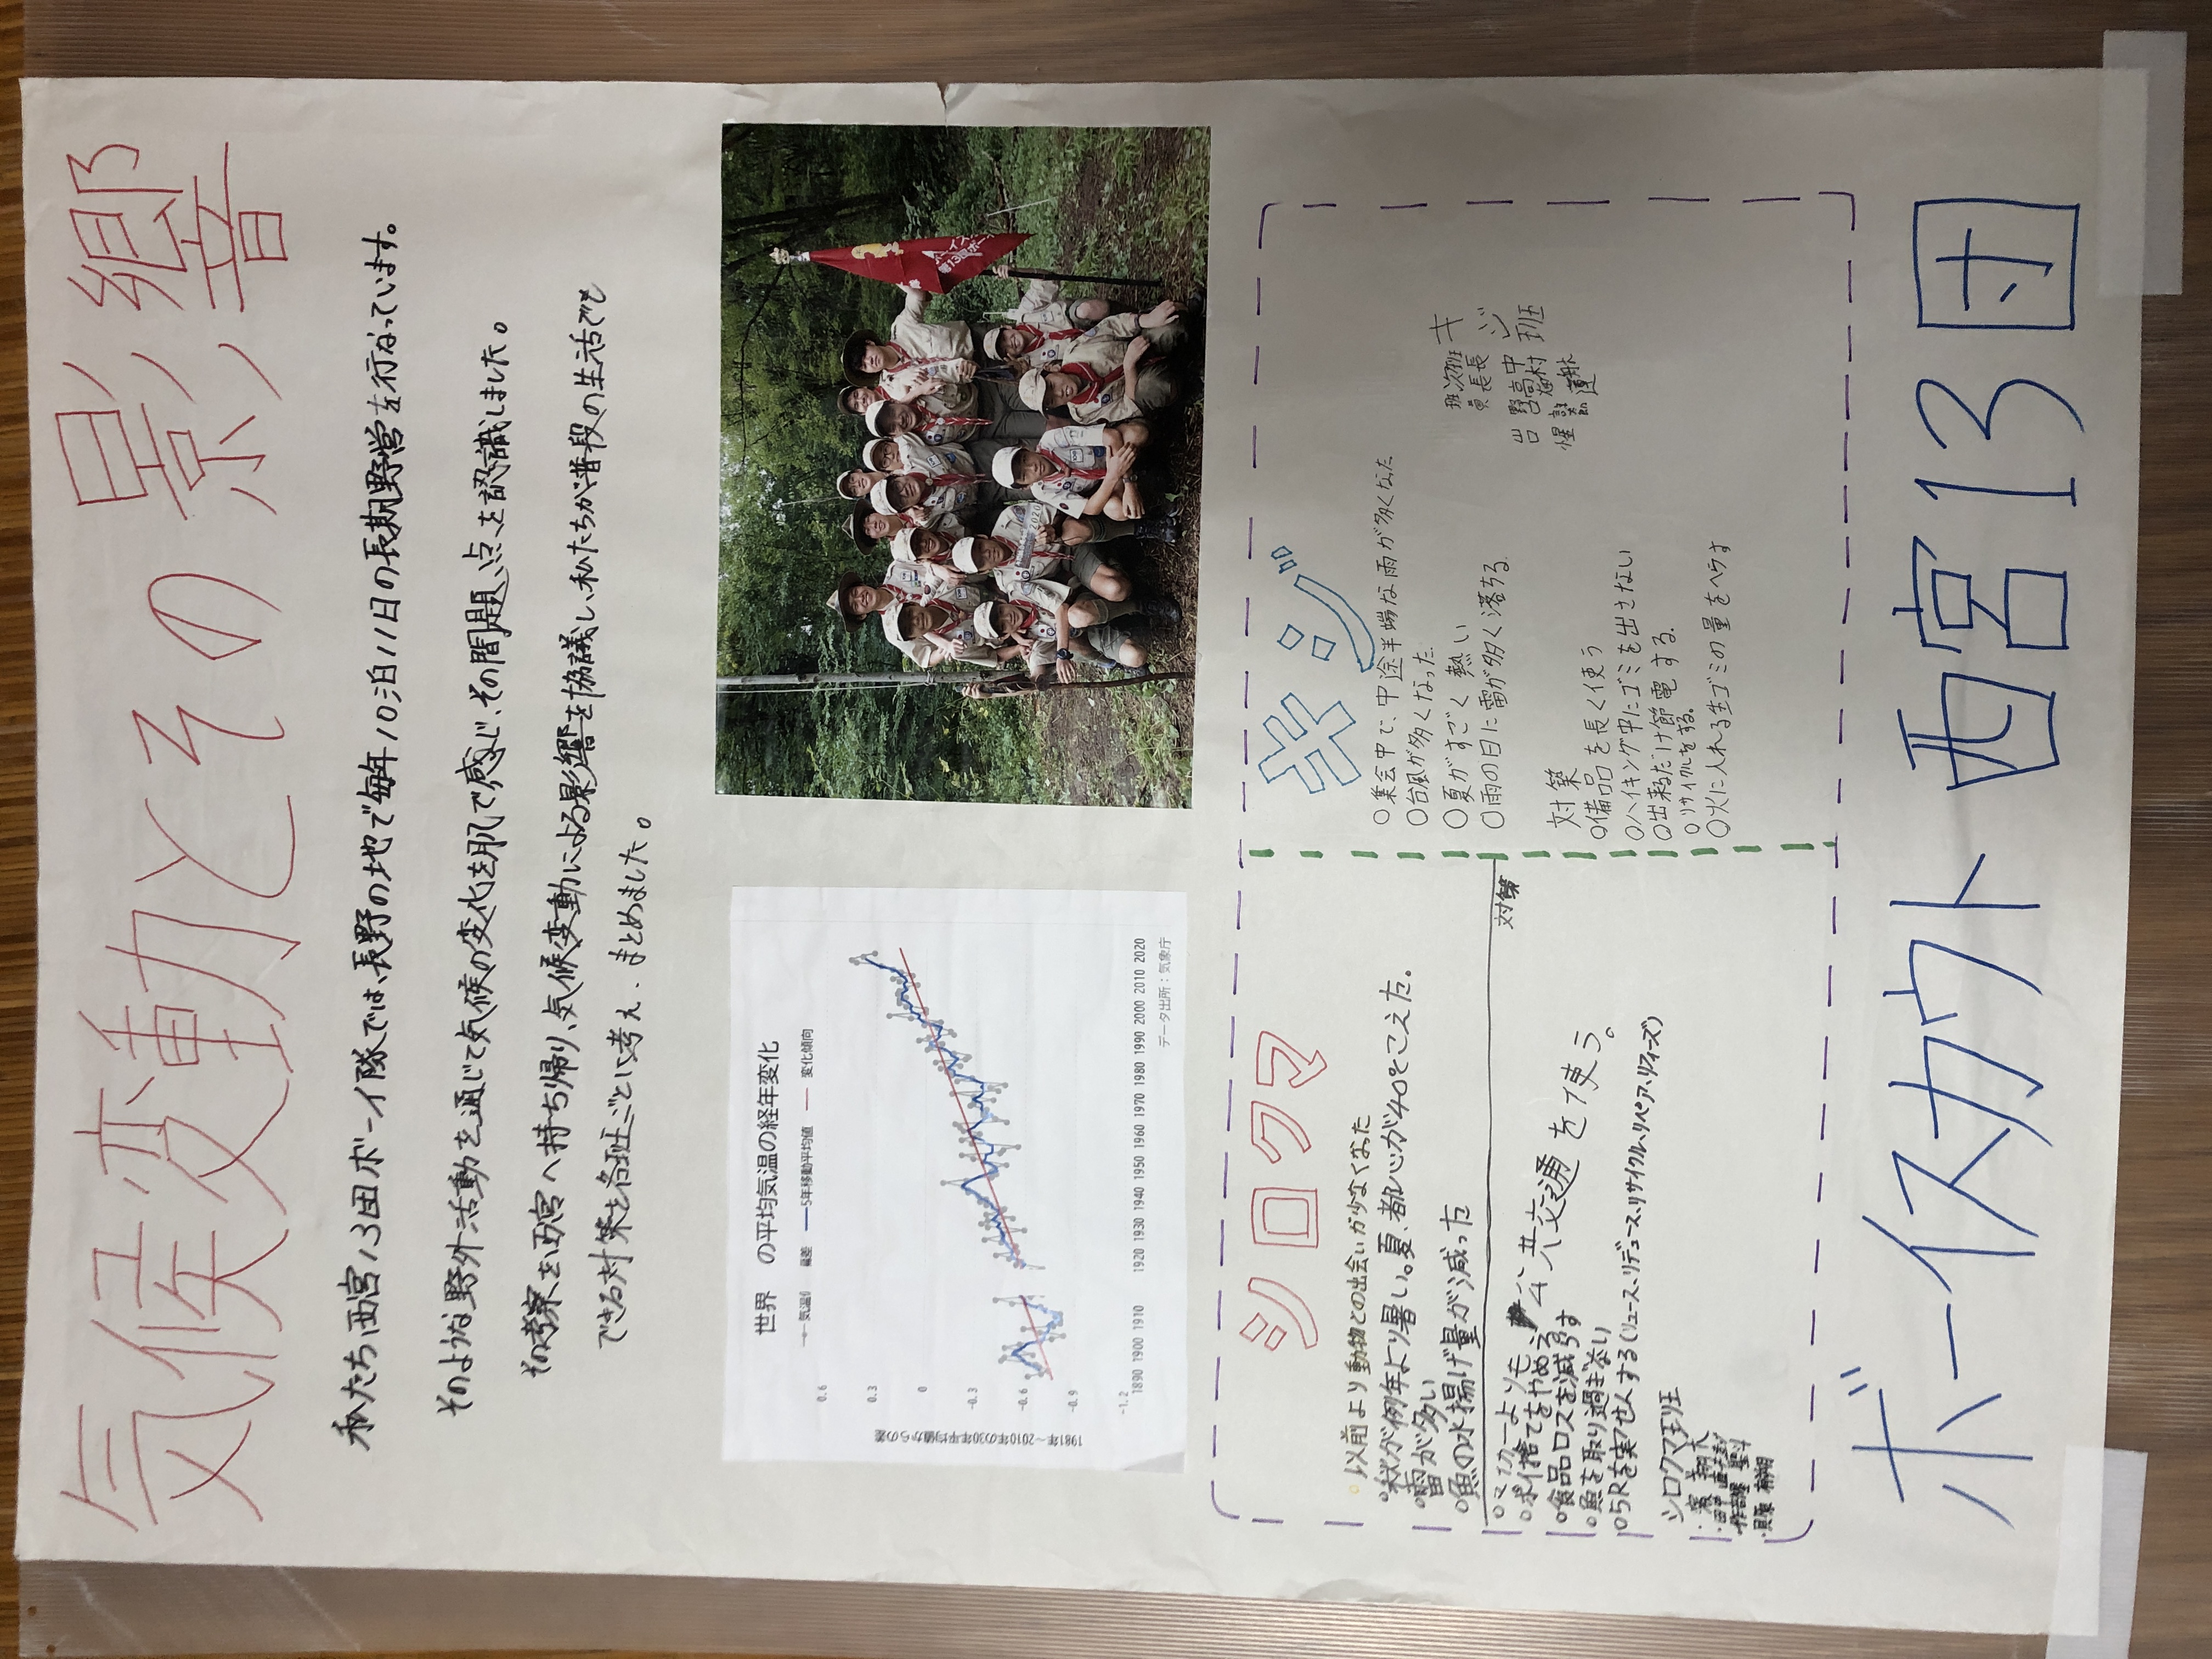 気候変動とその影響
私たち西宮13団ボーイ隊では、長野の地で毎年10泊11日の長期野営を行なっています。
そのような野外活動を通じて気候の変化を肌で感じ、その問題点を認識しました。
その考察を西宮へ持ち帰り、気候変動による影響を協議し、私たちが普段の生活でも
できる対策を各班ごとに考え、まとめました。
世界 の平均気温の経年変化
気温 偏差 5年移動平均値 変化傾向
1981年〜2010年の30年平均値からの差
0.6
0.3
0
-0.3
-0.6
-0.9
-1.2
1890 1900 1910 1920 1930 1940 1950 1960 1970 1980 1990 2000 2010 2020
データ出所：気象庁
2020
シロクマ
○以前より動物との出会いが少なくなった
○秋が例年より暑い。夏、都心が40℃こえた。
○雷が多い
○魚の水揚げ量が減った
対策
○マイカーよりも公共交通を使う。
○ポイ捨てをやめる
○食品ロスを減らす
○魚を取り過ぎない
○5Rを実せんする(リユース、リデュース、リサイクル、リペア、リフィーズ)
シロクマ班
・濱 翔大
・田中
・貝原
キジ
○集会中で、中途半端な雨が多くなった
○台風が多くなった
○夏がすごく熱い
○雨の日に雷が多く落ちる
対策
○備品を長く使う
○ハイキング中にゴミを出さない
○出来るだけ節電する
○リサイクルをする。
○火に入れる生ゴミの量をへらす
キジ班
班長 中村 航
次長 高 蓮
班員 野口
出口 惺
ボーイスカウト 西宮13団